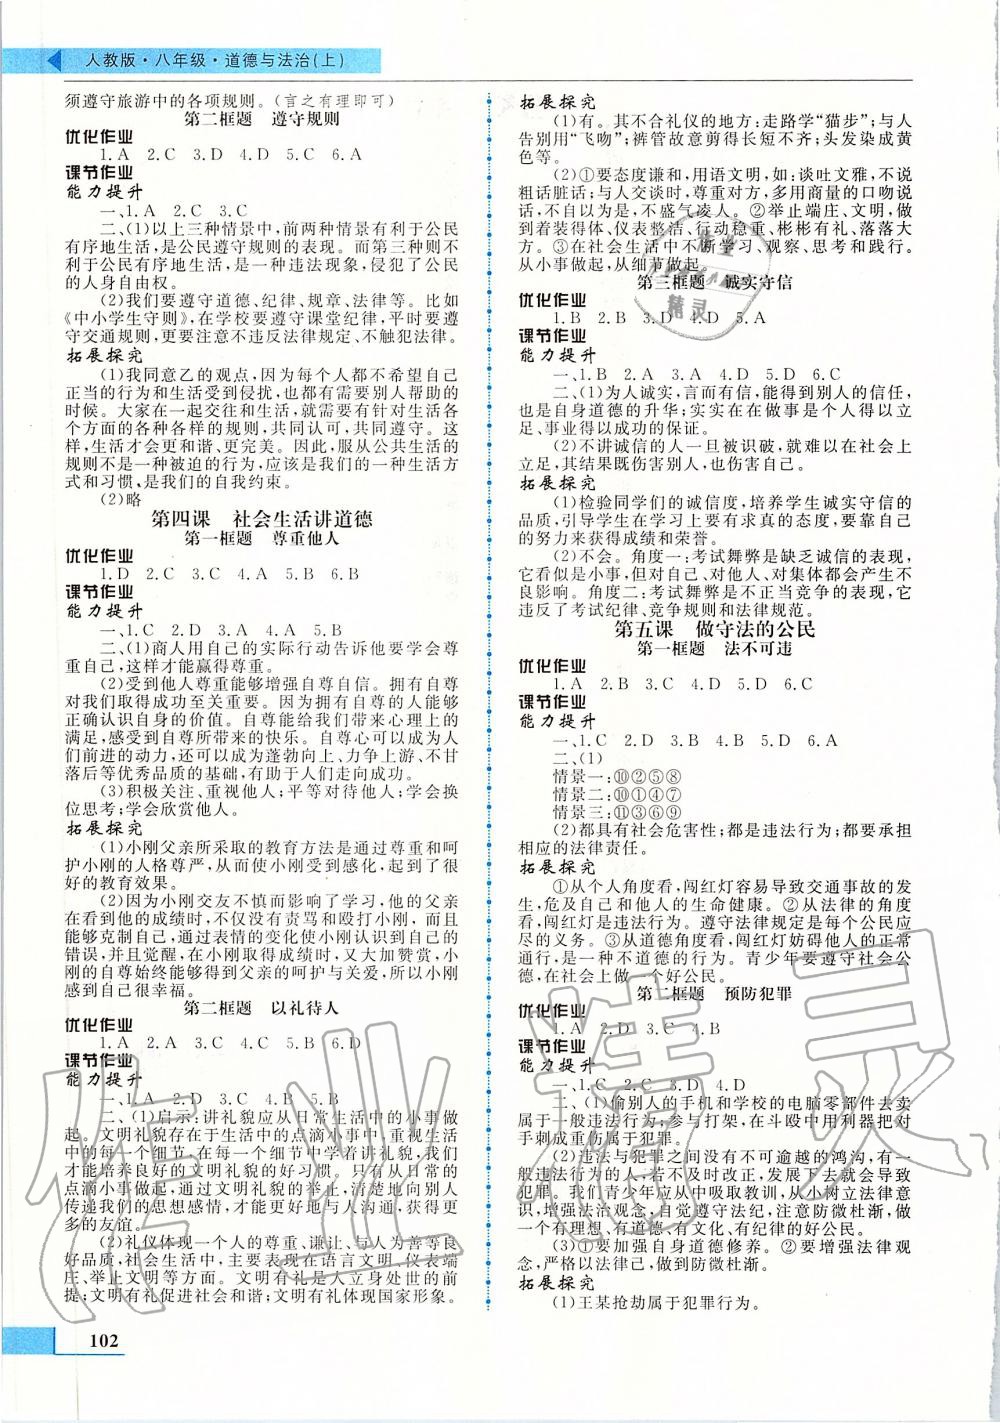 人教版·八年级·道德与法治(上)
须遵守旅游中的各项规则。(言之有理即可)
第二框题　遵守规则
优化作业
1.A　2.C　3.D　4.D　5.C　6.A
课节作业
能力提升
一、1.A　2.C　3.C
二、(1)以上三种情景中,前两种情景有利于公民
有序地生活,是公民遵守规则的表现。而第三种则不
利于公民有序地生活,是一种违法现象,侵犯了公民
的人身自由权。
(2)我们要遵守道德、纪律、规章、法律等。比如
《中小学生守则》,在学校要遵守课堂纪律,平时要遵
守交通规则,更要注意不违反法律规定、不触犯法律。
拓展探究
(1)我同意乙的观点,因为每个人都不希望自己
正当的行为和生活受到侵扰,也都有需要别人帮助的
时候。大家在一起交往和生活,就需要有针对生活各
个方面的各种各样的规则,共同认可,共同遵守。这
样,生活才会更和谐、更完美。因此,服从公共生活的
规则不是一种被迫的行为,应该是我们的一种生活方
式和习惯,是我们的自我约束。
(2)略
第四课　社会生活讲道德
第一框题　尊重他人
优化作业
1.D　2.C　3.C　4.A　5.B　6.B
课节作业
能力提升
一、1.C　2.D　3.A　4.A　5.B
二、(1)商人用自己的实际行动告诉他要学会尊
重自己,这样才能赢得尊重。
(2)受到他人尊重能够增强自尊自信。拥有自尊
对我们取得成功至关重要。因为拥有自尊的人能够
正确认识自身的价值。自尊能给我们带来心理上的
满足,感受到自尊所带来的快乐。自尊心可以成为人
们前进的动力,还可以成为蓬勃向上、力争上游、不甘
落后等优秀品质的基础,有助于人们走向成功。
(3)积极关注、重视他人;平等对待他人;学会换
位思考;学会欣赏他人。
拓展探究
(1)小刚父亲所采取的教育方法是通过尊重和呵
护小刚的人格尊严,从而使小刚受到感化,起到了很
好的教育效果。
(2)因为小刚交友不慎而影响了学习,他的父亲
在看到他的成绩时,不仅没有责骂和殴打小刚,而且
能够克制自己,通过表情的变化使小刚认识到自己的
错误,并且觉醒,在小刚取得成绩时,又大加赞赏,小
刚的自尊始终能够得到父亲的呵护与关爱,所以小刚
感到自己很幸福。
第二框题　以礼待人
优化作业
1.A　2.A　3.C　4.C　5.B　6.D
课节作业
能力提升
一、1.A　2.D　3.C　4.B　5.B
二、(1)启示:讲礼貌应从日常生活中的小事做
起。文明礼貌存在于生活中的点滴小事中,重视生活
中的每一个细节,在每一个细节中学着讲礼貌,我们
才能培养良好的文明礼貌的好习惯。只有从日常的
点滴小事做起,通过文明礼貌,清楚地向别人
传递我们的思想感情,才能更好地与人沟通,获得更
多的友谊。
(2)礼仪体现一个人的尊重、谦让、与人为善等良
好品质,社会生活中主要表现在语言文明、仪表端
庄、举止文明等方面。文明有礼是人立身处世的前
提;文明有礼促进社会和谐;文明有礼体现国家形象。
102
拓展探究
(1)有。其不合礼仪的地方:走路学“猫步”;与人
告别用“飞吻”;裤管故意剪得长短不齐;头发染成黄
色等。
(2)①要态度谦和,用语文明,如:谈吐文雅,不说
粗话脏话;与人交谈时,尊重对方,多用商量的口吻说
话,不自以为是,不盛气凌人。②举止端庄、文明,做
到着装得体、仪表整洁、行动稳重、彬彬有礼、落落大
方。③在社会生活中不断学习、观察、思考和践行。
从小事做起,从细节做起。
第三框题　诚实守信
优化作业
1.B　2.B　3.D　4.D　5.A
课节作业
能力提升
一、1.B　2.A　3.A　4.D　5.D　6.C
二、(1)为人诚实,言而有信,能得到别人的信任,
也是自身道德的升华;实实在在做事是个人得以立
足、事业得以成功的保证。
(2)不讲诚信的人一旦被识破,就难以在社会上
立足,其结果既伤害别人,也伤害自己。
拓展探究
(1)检验同学们的诚信度,培养学生诚实守信的
品质,引导学生生活上要有求真的态度,要以自己的
的努力来获得成绩和荣誉。
(2)不会。角度一:考试舞弊是缺乏诚信的表现,
它看似是小事,但对自己、对他人、对集体都会产生不
良影响。角度二:考试舞弊是不正当竞争的表现,它
违反了考试纪律、竞争规则和法律规范。
第五课　做守法的公民
第一框题　法不可违
优化作业
1.A　2.C　3.B　4.D　5.D　6.C
课节作业
能力提升
一、1.C　2.D　3.D　4.B　5.D　6.A
二、(1)
情景一:⑩②⑤⑧
情景二:⑩①④⑦
情景三:⑪③⑥⑨
(2)都具有社会危害性;都是违法行为;都要承担
相应的法律责任。
拓展探究
①从个人角度看,闯红灯容易导致交通事故的发
生,危及自己和他人的生命健康。②从法律的角度
看,闯红灯是违法行为。遵守法律规定是每个公民应
尽的义务。③从道德角度看,闯红灯妨碍他人的正常
通行,是一种不道德的行为。青少年要遵守社会公
德,在社会上做一个好公民。
第二框题　预防犯罪
优化作业
1.A　2.D　3.C　4.B
课节作业
能力提升
一、1.C　2.D　3.D　4.D
二、(1)偷别人的手机和学校的电脑零部件去卖
属于一般违法行为,参与打架,在斗殴中用利器把对
手刺成重伤属于犯罪。
(2)违法与犯罪之间没有不可逾越的鸿沟,有一
般违法行为的人,若不及时改正,发展下去就会导致
犯罪。我们青少年应从中吸取教训,从小树立法律意
识,增强法治观念,自觉遵守法纪,注意防微杜渐,做一
个有理想、有道德、有文化、有纪律的好公民。
(3)①要加强自身道德修养。②要增强法律观
念,严格以法律己,做到防微杜渐。
拓展探究
(1)王某抢劫属于犯罪行为。
作业精灵